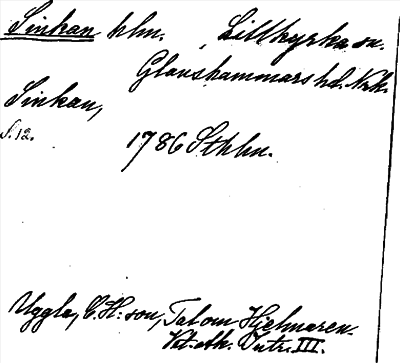 Sinkan hlm. Lillkyrka sn.
Glanshammars hd. Nrk.
Sinkan,
S. 12.
1786 Sthlm.
Uggla, C. H:son, Tal om Hjelmaren.
Vet. ak. Intr. III.